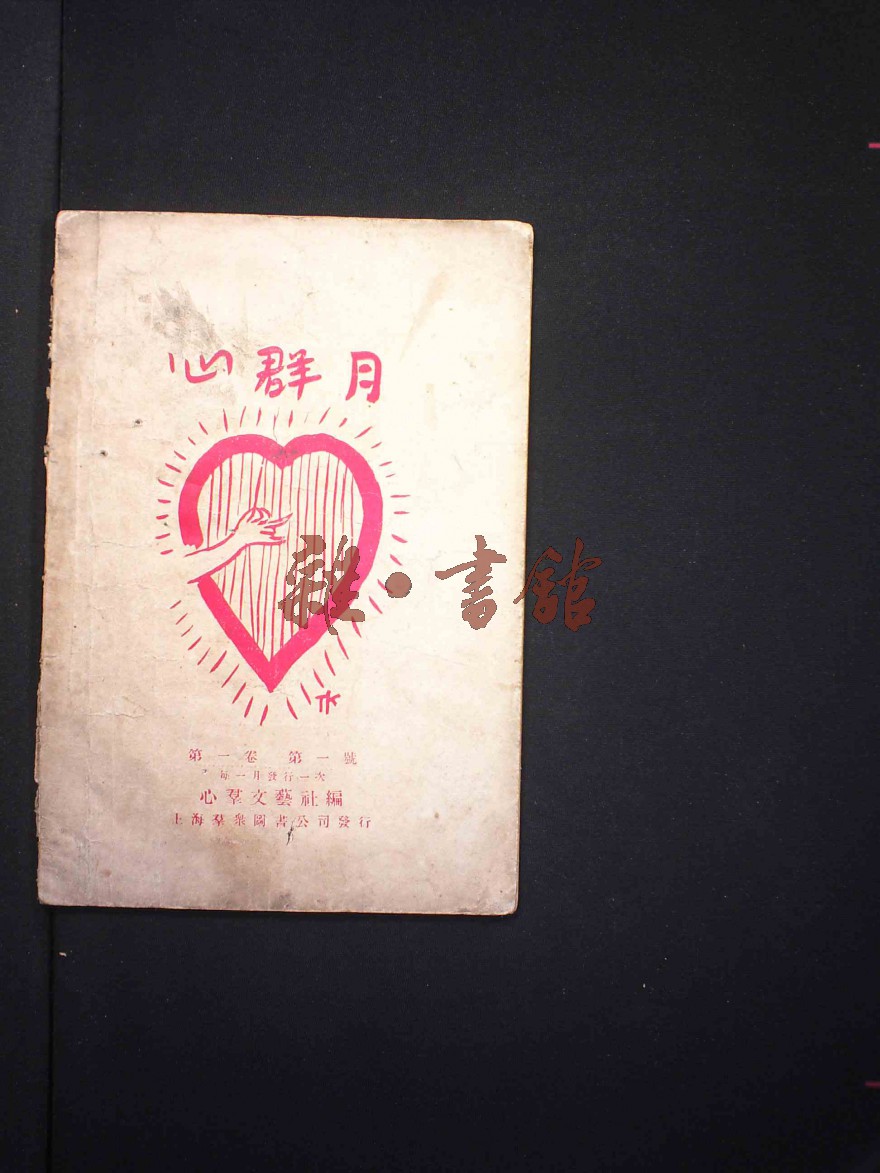 心群月
TK
第一卷 第一號
每一月發行一次
心羣文藝社編
上海羣衆圖書公司發行
雜·書館